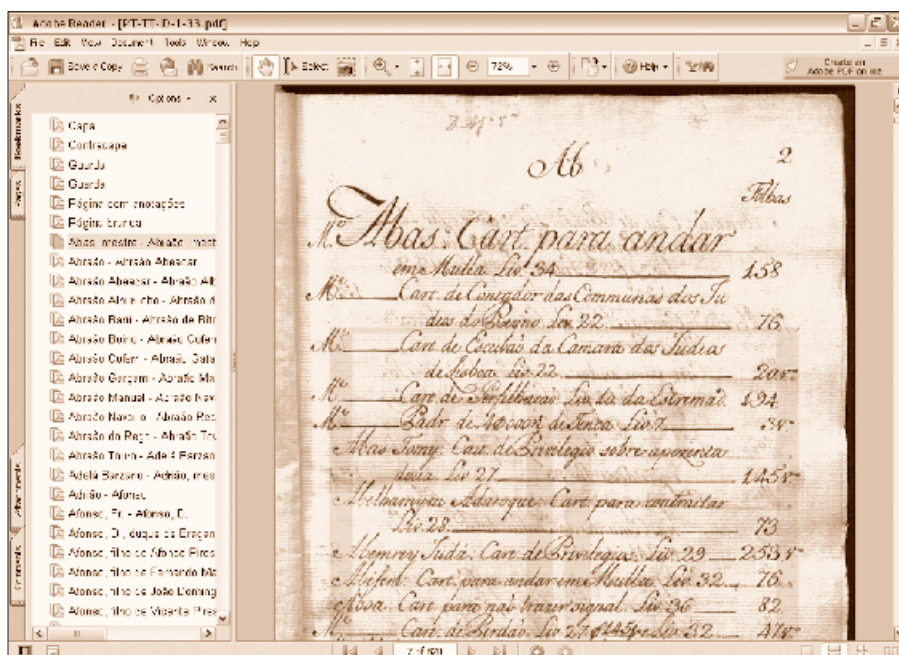 Adobe Reader - [PT-TT-ID-1-33.pdf]
File Edit View Document Tools Window Help
Save a Copy Search Select 72% Help Create an Adobe PDF online
Options x
Bookmarks
Pages
Attachments
Comments
Capa
Contracapa
Guarda
Guarda
Página com anotações
Página branca
Abas, mestre - Abraão, mest
Abraão - Abraão Abeacar
Abraão Abeacar - Abraão Alb
Abraão - Abraão d
Abraão - Abraão de Bitr
Abraão - Abraão Cofem
Abraão Cofem - Abraão
Abraão - Abraão Ma
Abraão Manual - Abraão Nav
Abraão Navarro - Abraão Reg
Abraão do Rego - Abraão Tou
Abraão Touro - Adelá Barzan
Adelá Barzano - Adrião, mes
Adrião - Afonso
Afonso, Fr. - Afonso, D.
Afonso, D., duque de Bragan
Afonso, filho de Afonso Pires
Afonso, filho de Fernando Ma
Afonso, filho de João Doming
Afonso, filho de Vicente Pires
Ab 2
Folhas
M.e Abas. Cart. para andar
em Mulla Liv. 34 158
M.e Cart. de Corregedor das Communas dos Ju
deos do Reyno Liv. 22 76
M.e Cart. de Escrivão da Camara dos Judeos
de Lisboa Liv. 22 20 v.o
M.e Cart. de Perfilhação Liv. da Estremad. 194
M.e Padr. de de Tença Liv. 3 v.o
Abas Tomy. Cart. de Privilegio sobre aposenta
doria Liv. 27 145 v.o
Cart. para contratar
Liv. 28 73
Judá. Cart. de Privilegios. Liv. 29 253 v.o
Cart. para andar em Mulla Liv. 32 76
Cart. para não trazer signal. Liv. 36 82
M.e Cart. de Perdão. Liv. 27 Liv. 32 47 v.o
7 of 820